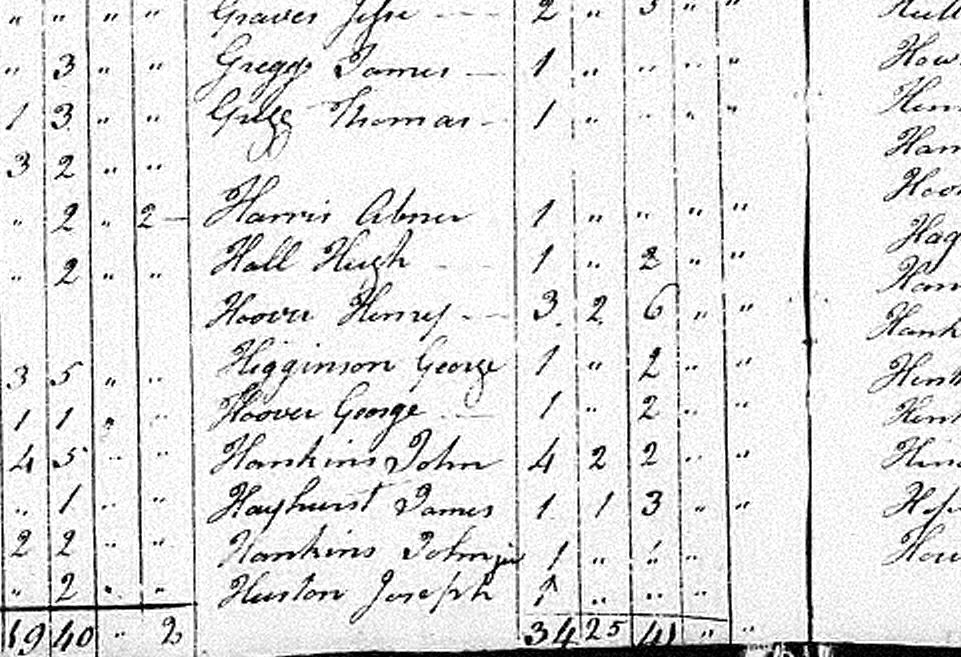 " " " " Graves Jesse 2 " 3 " "
" 3 " " Gregg James 1 " " " "
1 3 " " Gregg Thomas 1 " " " "
3 2 " "
" 2 " 2 Harris Abner 1 " " " "
" 2 " " Hall Hugh 1 " 2 " "
Hoover Henry 3 2 6 " "
3 5 " " Higginson George 1 " 2 " "
1 1 " " Hoover George 1 " 2 " "
4 5 " " Hankins John 4 2 2 " "
" 1 " " Hayhurst James 1 1 3 " "
2 2 " " Hankins John jun 1 " 1 " "
" 2 " " Huston Joseph 1 " " "
19 40 " 2 34 25 41 " "